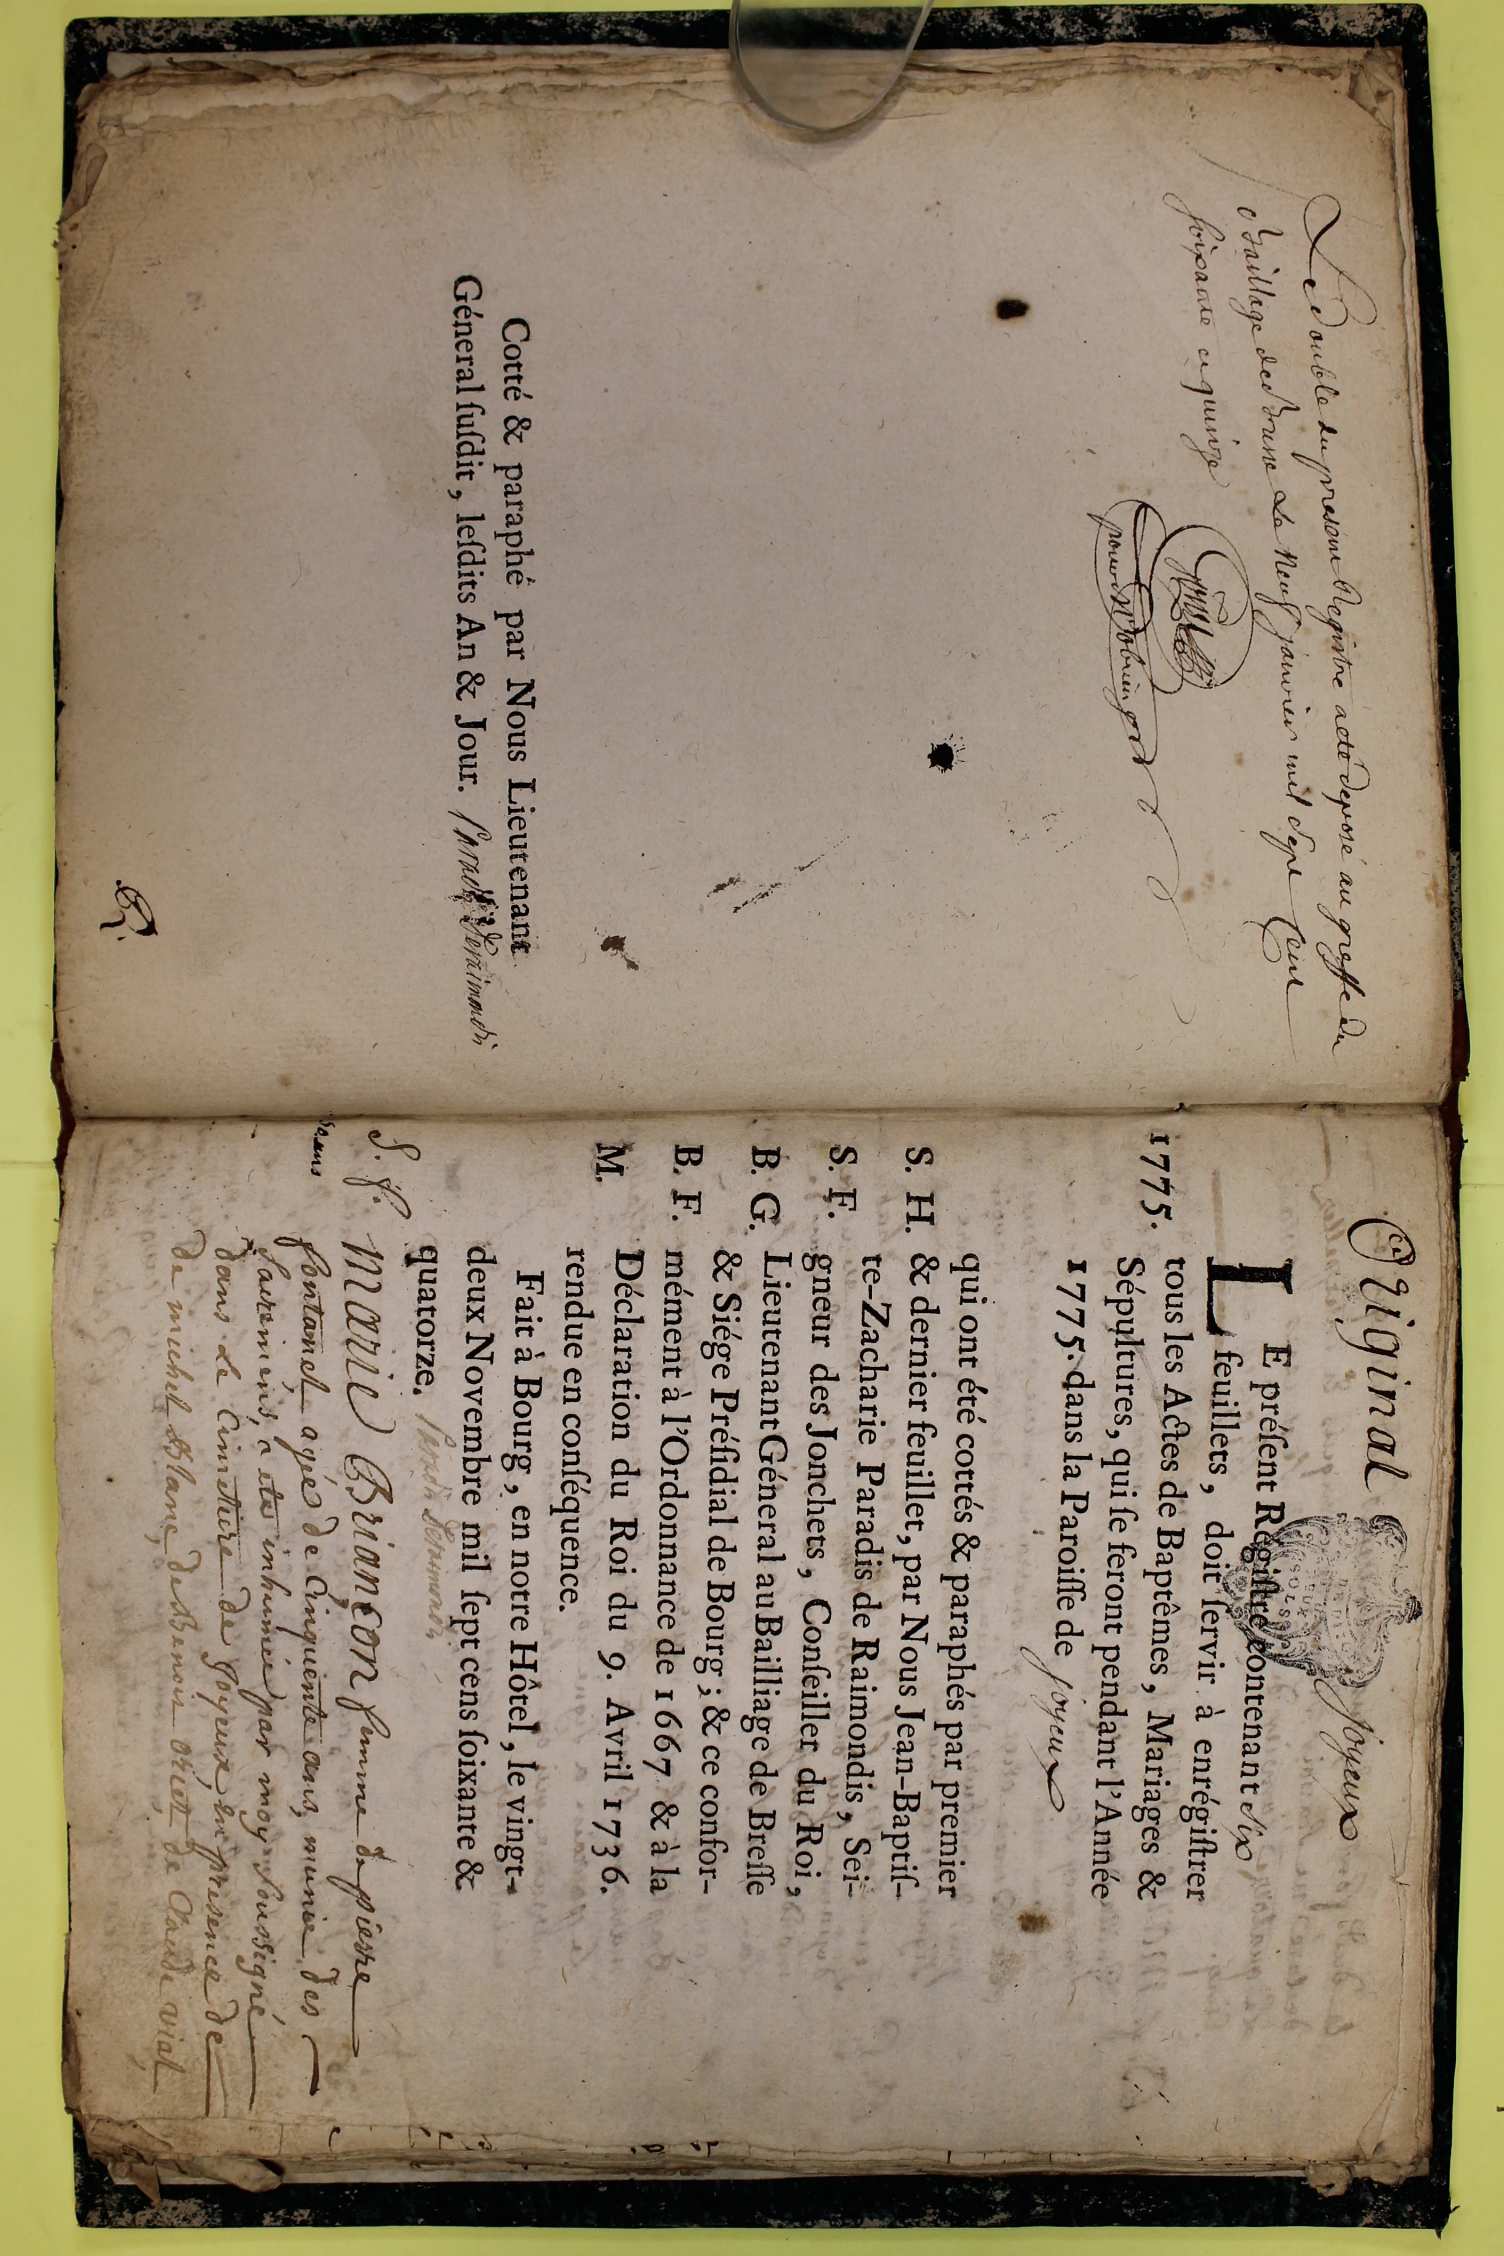 Le double du present Registre a eté deposé au greffe du
Bailliage de Bresse Le neuf janvier mil sept Cent
soixante et quinze
Cotté & paraphé par Nous Lieutenant
Géneral ſuſdit, leſdits An & Jour. Paradis de Raimondis
Original Joyeux
LE préſent Régiſtre contenant Six
feuillets, doit ſervir à enrégiſtrer
1775. tous les Actes de Baptêmes, Mariages &
Sépultures, qui ſe feront pendant l'Année
1775. dans la Paroiſſe de Joyeux
qui ont été cottés & paraphés par premier
S. H. & dernier feuillet, par Nous Jean-Baptiſ-
te-Zacharie Paradis de Raimondis, Sei-
S. F. gneur des Jonchets, Conſeiller du Roi,
B. G. Lieutenant Géneral au Bailliage de Breſſe
& Siége Préſidial de Bourg; & ce confor-
B. F. mément à l'Ordonnance de 1667 & à la
M. Déclaration du Roi du 9. Avril 1736.
rendue en conſéquence.
Fait à Bourg, en notre Hôtel, le vingt-
deux Novembre mil ſept cens ſoixante &
quatorze. Paradis de Raimondis
S. f. Marie Briançon femme de pierre
50 ans fontanel agée de Cinquente ans, munie des
Sacremens, a eté inhumée par moy soussigné
dans Le Cimetiere de Joyeux, en presence de
de michel Blanc, de Benoit de Claude vial